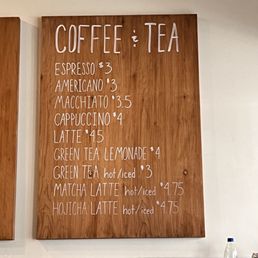 COFFEE & TEA
ESPRESSO $3
AMERICANO $3
MACCHIATO $3.5
CAPPUCCINO $4
LATTE $4.5
GREEN TEA LEMONADE $4
GREEN TEA hot/iced $3
MATCHA LATTE hot/iced $4.75
HOJICHA LATTE hot/iced $4.75